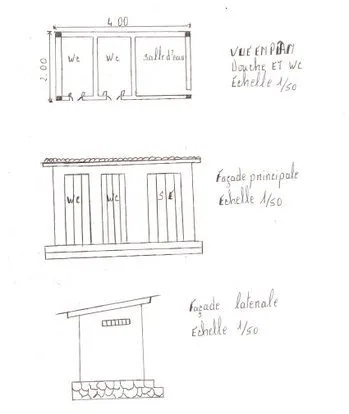 4.00
2.00
WC
WC
Salle d'eau
VUE EN PLAN
Douche ET WC
Echelle 1/50
WC
WC
S E
Façade principale
Echelle 1/50
Façade latérale
Echelle 1/50